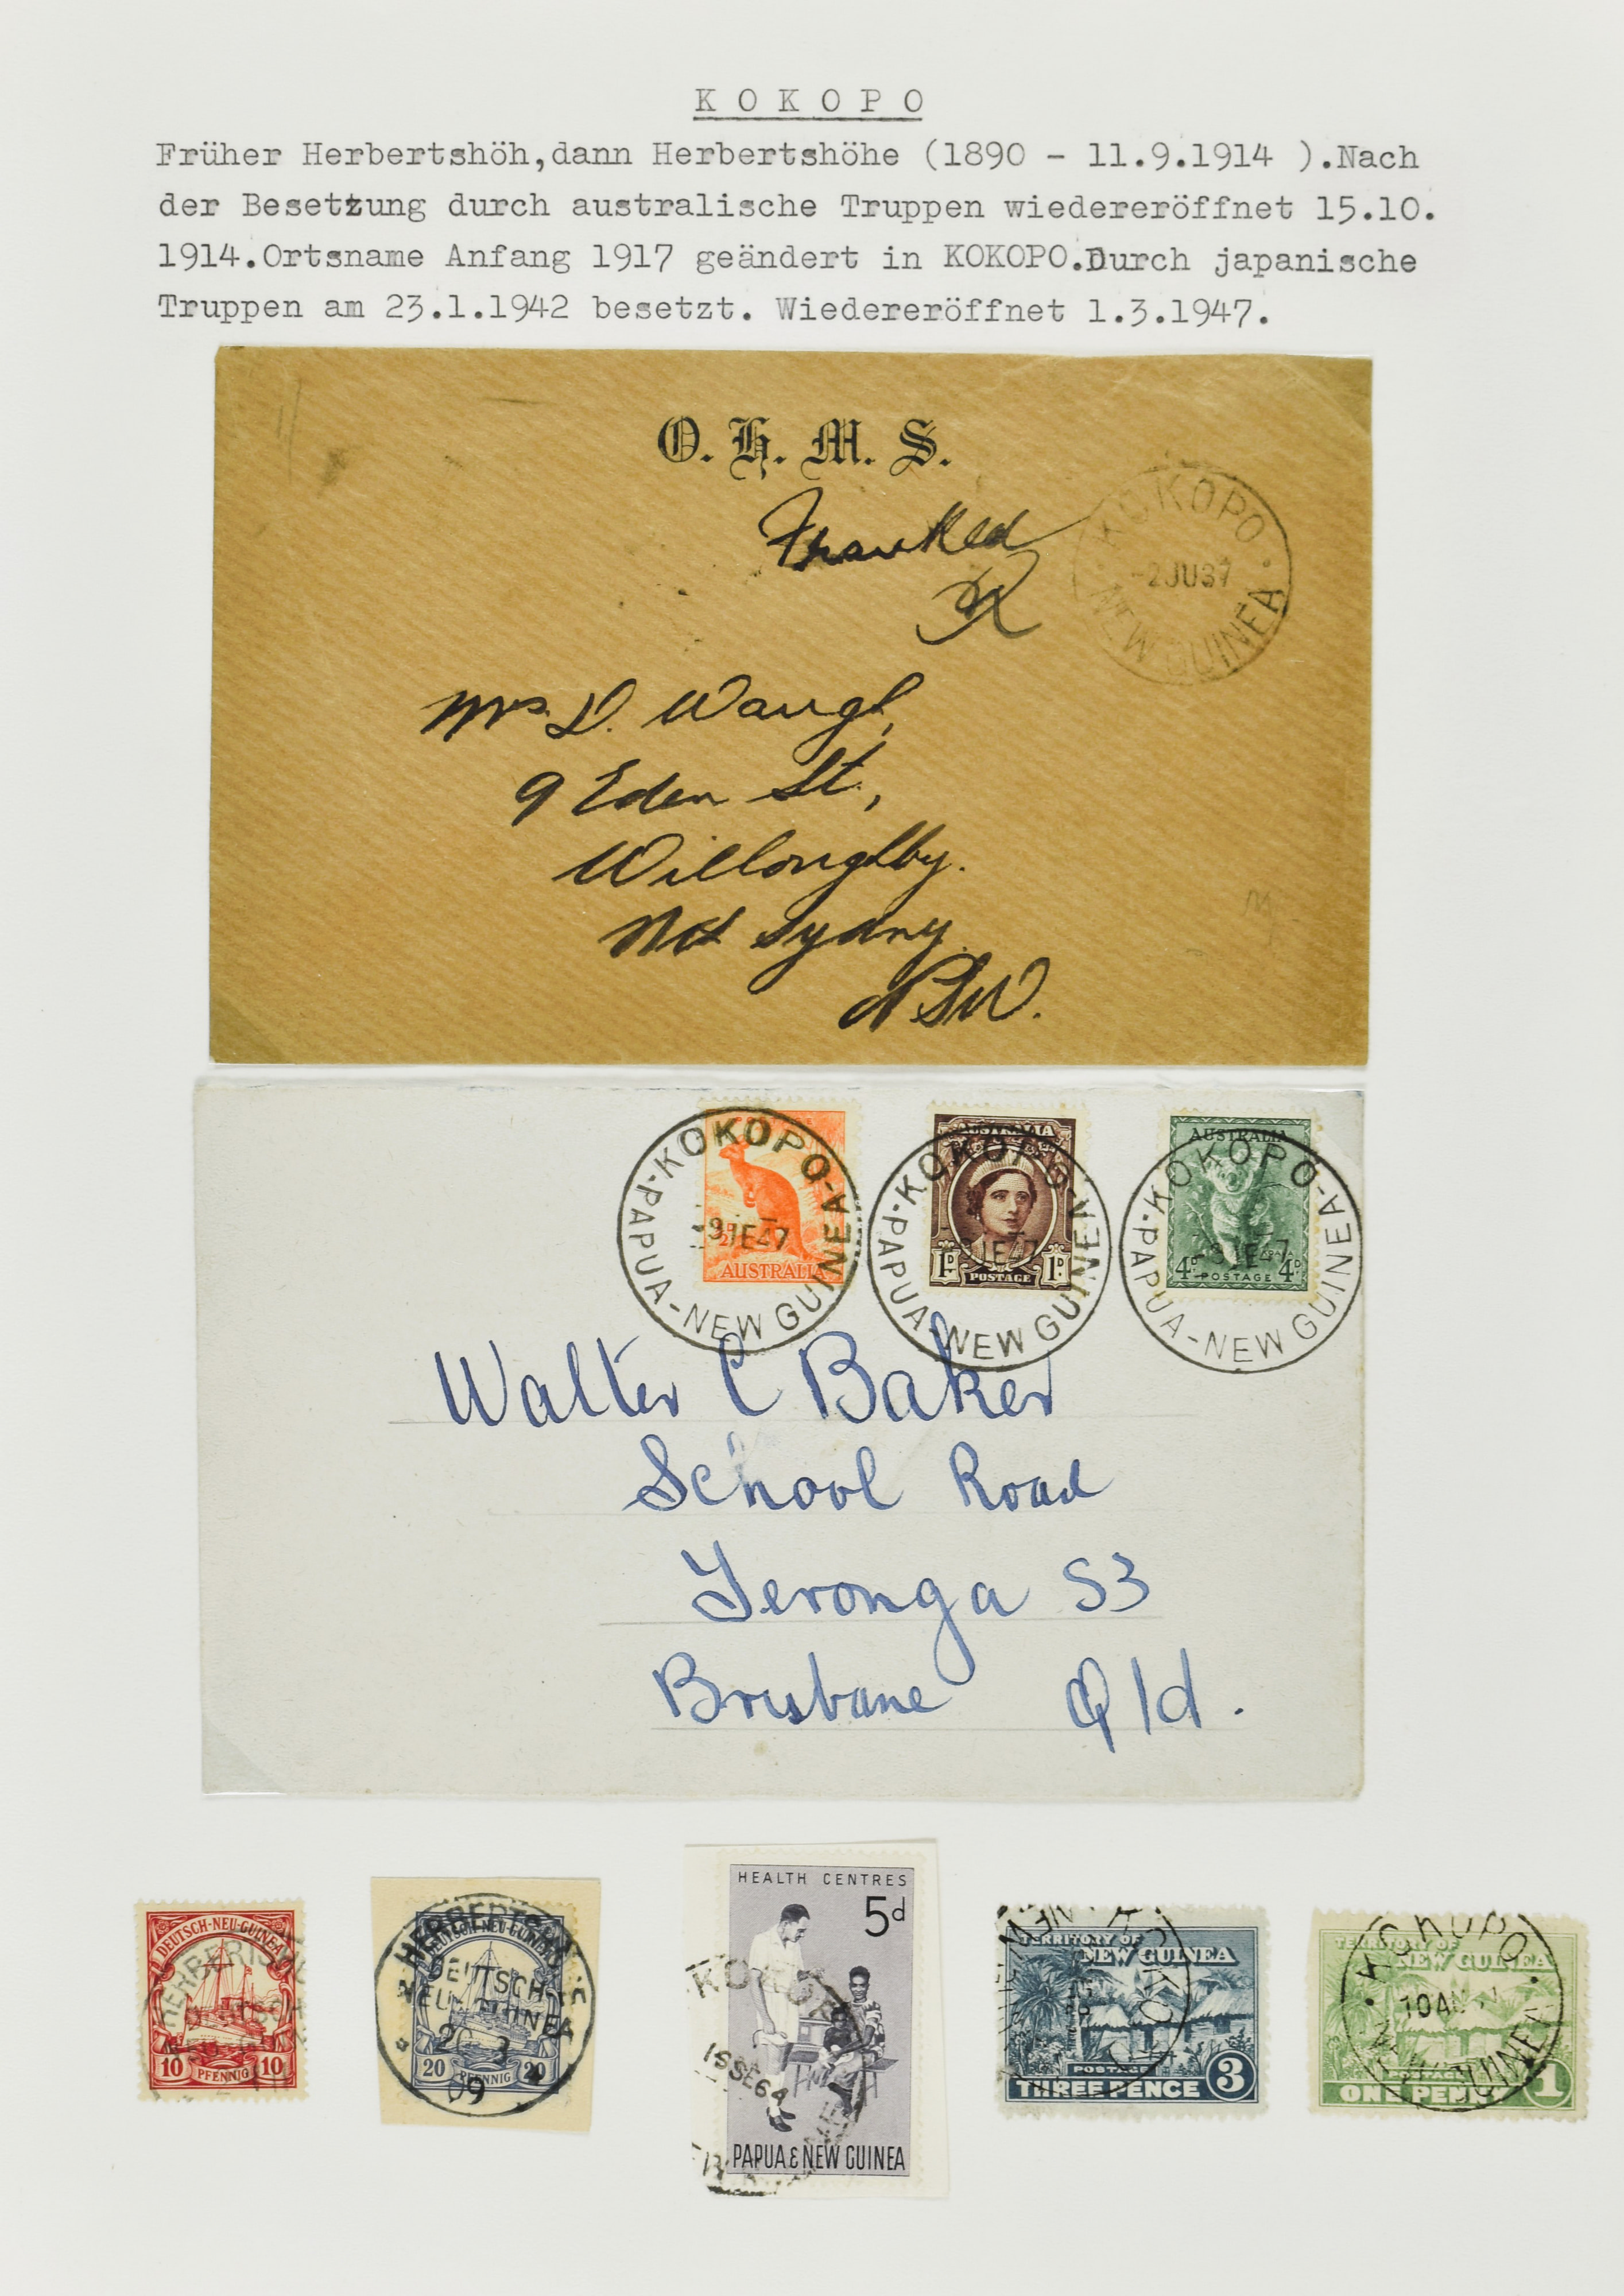 KOKOPO
Früher Herbertshöh,dann Herbertshöhe (1890 - 11.9.1914 ).Nach
der Besetzung durch australische Truppen wiedereröffnet 15.10.
1914.Ortsname Anfang 1917 geändert in KOKOPO.Durch japanische
Truppen am 23.1.1942 besetzt. Wiedereröffnet 1.3.1947.
O. H. M. S.
Franked
KOKOPO
-2JU37
NEW GUINEA
Mrs D. Waugh,
9 Eden St.,
Willoughby.
Nth Sydny
NSW.
KOKOPO
-9JE47
PAPUA-NEW GUINEA
AUSTRALIA
KOKOPO
AUSTRALIA
-9JE47
1D POSTAGE 1D
PAPUA-NEW GUINEA
AUSTRALIA
KOKOPO
4D POSTAGE 4D
PAPUA-NEW GUINEA
Walter C Baker
School Road
Yeronga S3
Brisbane Qld.
DEUTSCH-NEU-GUINEA
10 PFENNIG 10
HERBERTSHÖHE
DEUTSCH-NEU-GUINEA
DEUTSCH-
NEUGUINEA
20 3
09
20 PFENNIG 20
HEALTH CENTRES
5d
15SE64
PAPUA & NEW GUINEA
TERRITORY OF
NEW GUINEA
POSTAGE
THREE PENCE 3
TERRITORY OF
NEW GUINEA
KOKOPO
10AU
NEW GUINEA
POSTAGE
ONE PENNY 1